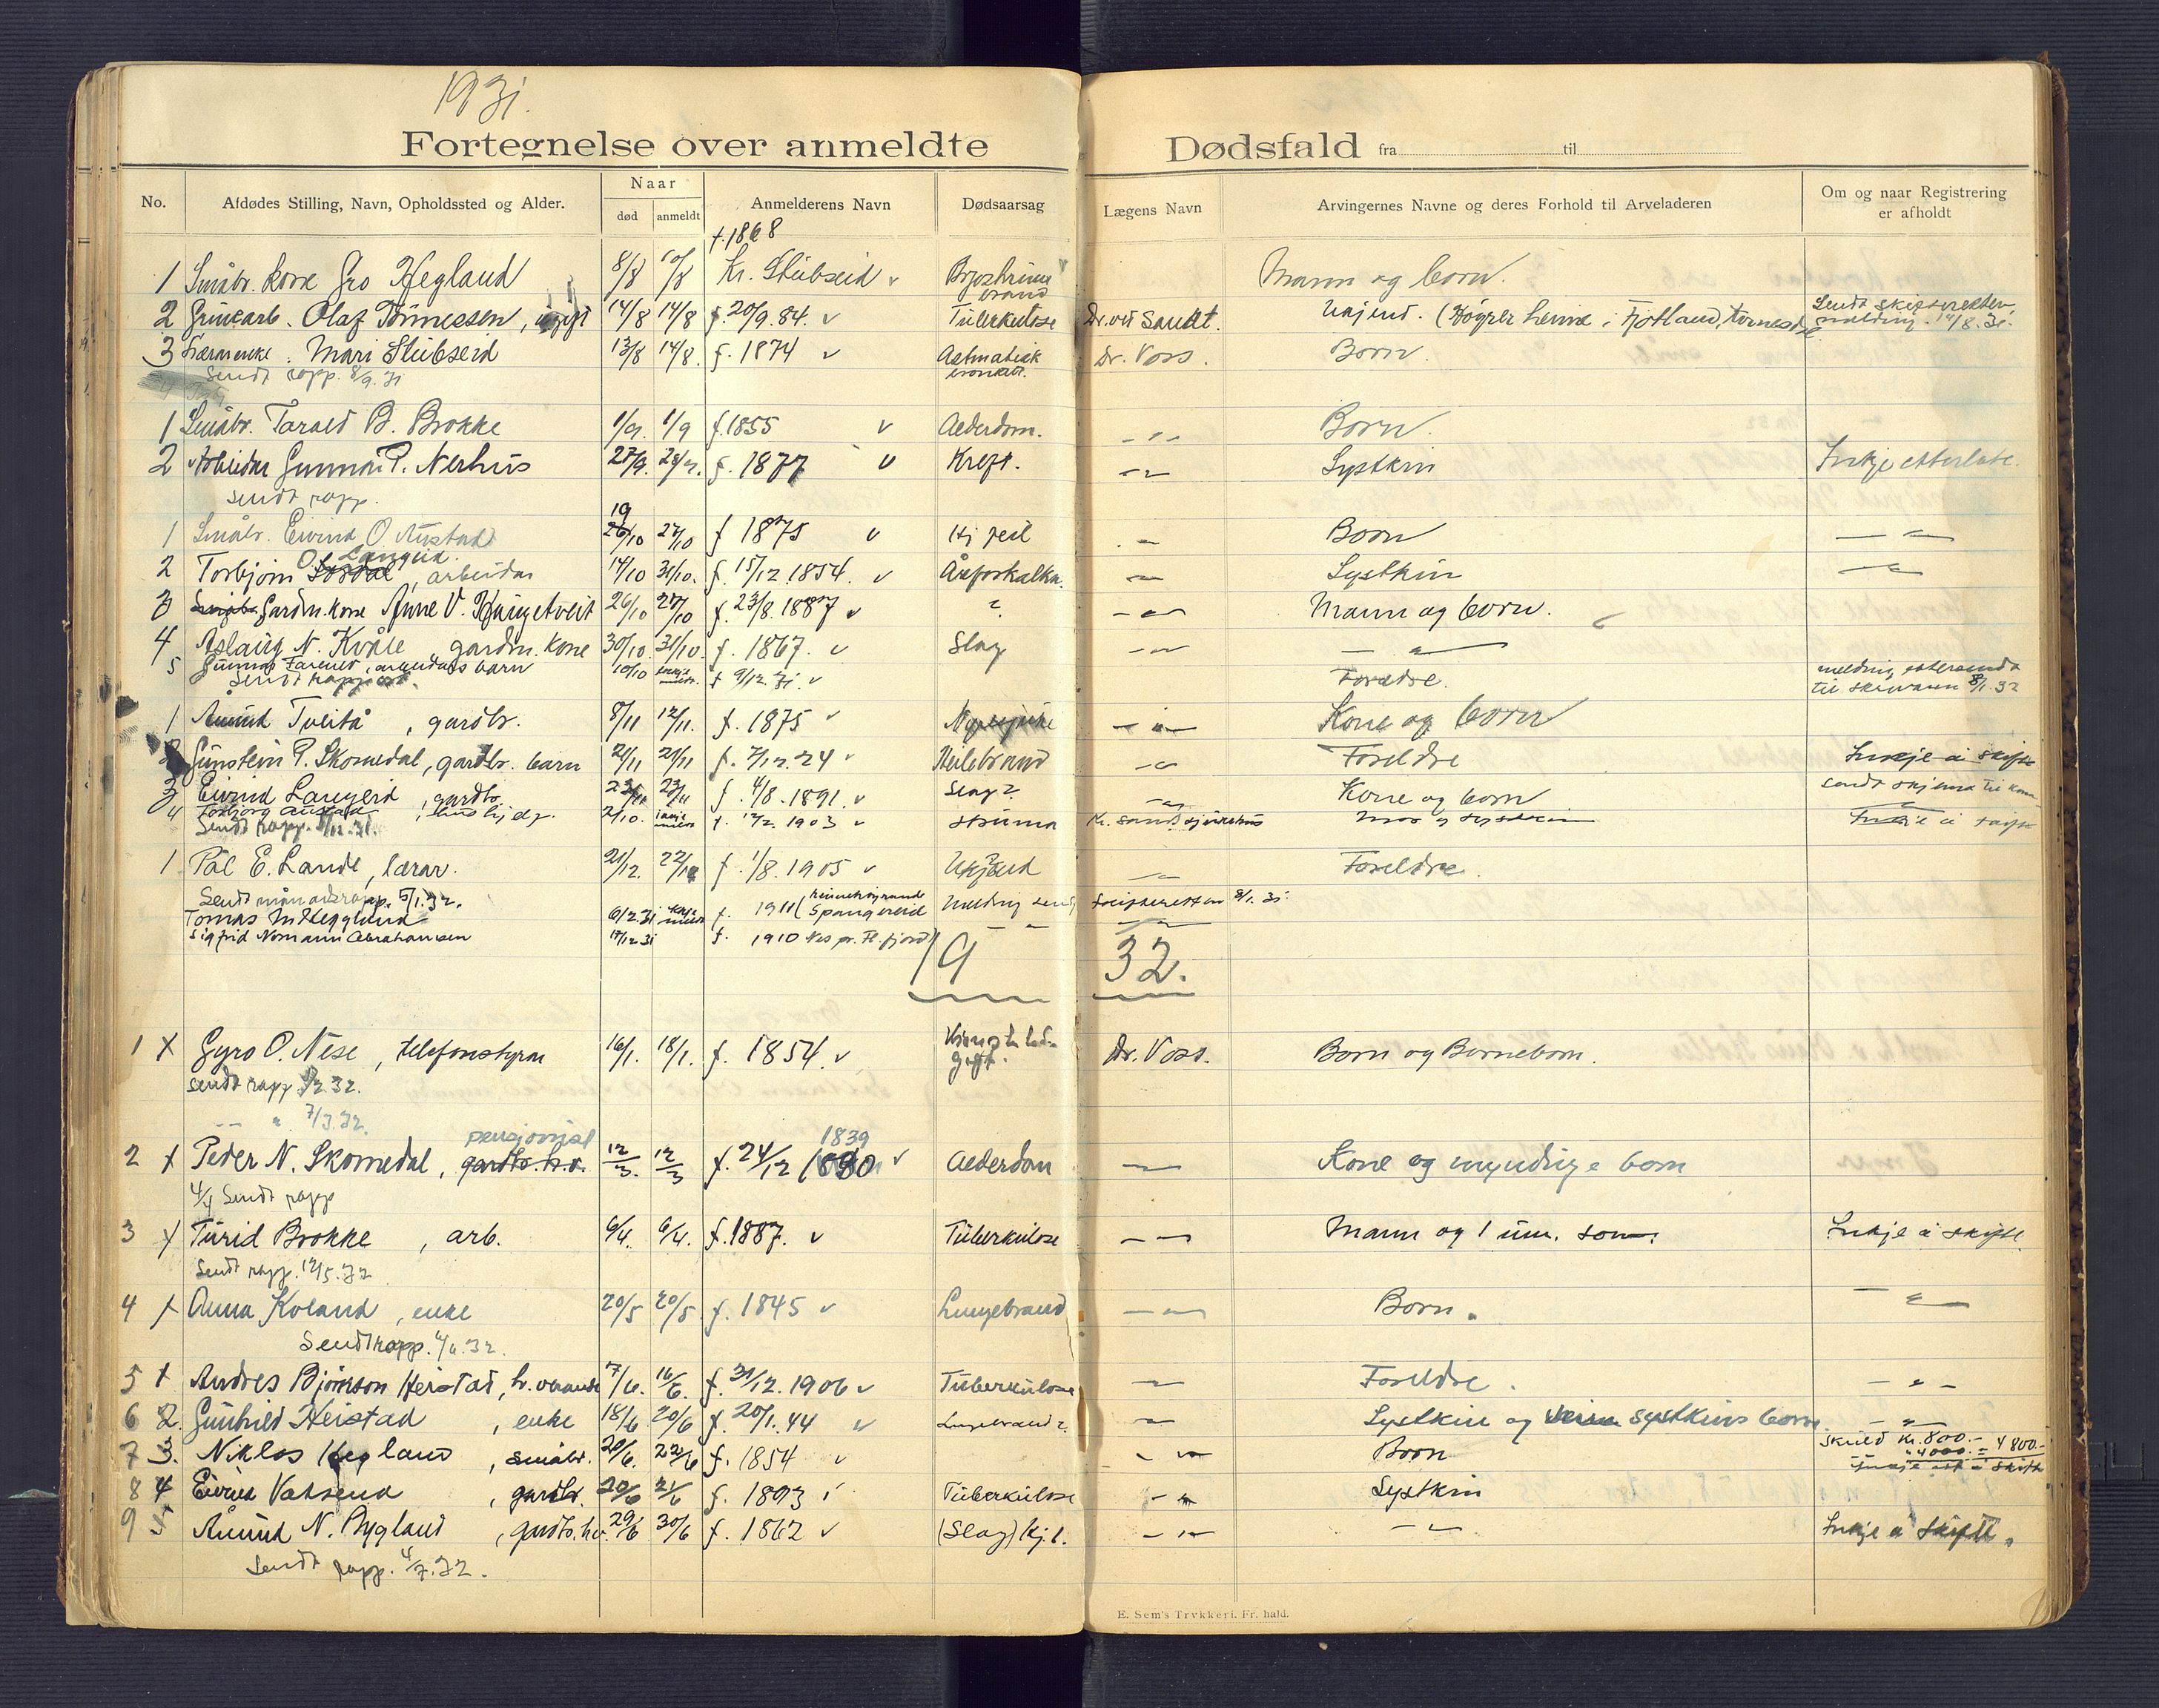 1931.
Fortegnelse over anmeldte Dødsfald fra til
No. Afdødes Stilling, Navn, Opholdssted og Alder. Naar død anmeldt Anmelderens Navn Dødsaarsag Lægens Navn Arvingernes Navne og deres Forhold til Arveladeren Om og naar Registrering er afholdt
f. 1868
1 Småbr. kone Gro Hegland 8/8 10/8 Kr. Stubseid v Mann og born.
2 Gruvearb. Olaf Tønnessen, ugift 14/8 14/8 f. 20/9.84. v Tuberkulose Dr. ved Sandt. Ukjend. (Høyrer heime i Fjotland, Sendt skifteretten
melding. 14/8.31.
3 Mari Stubseid 13/8 14/8. f. 1874 v Astmatisk bronkit. Dr. Voss. Born.
Sendt rapp. 8/9.31
1 Småbr. Tarald B. Brokke 1/9. 1/9 f. 1855 v Alderdom. - " - Born.
2 Arbeidar Gunnar P. Nerhus 27/9. 28/9. f. 1877 v Kreft. - " - Systkin Inkje etterlate.
Sendt rapp.
19
1 Småbr. Eivind O. Austad 26/10 27/10 f 1875 v Hj feil - " - Born - " -
O. Langeid.
2 Torbjørn, arbeidar 14/10 31/10. f. 15/12 1854. v Åreforkalkn. - " - Systkin - " -
3 Gardm. kone Anne V. 26/10 27/10 f. 23/8. 1887 v ? - " - Mann og born.
4 Aslaug N. Kvåle gardm. kone 30/10. 31/10. f. 1867. v Slag - " - - " -
5 Gunnar, arbeidars barn 10/10 f 9/12. 31. v Foreldre. melding ettersendt
Sendt rapport. 8/1.32
1 Åmund Tveitå, gardbr. 8/11 12/11. f. 1875 v - " - Kone og born
2 Gunstein P. Skomedal, gardbr. barn 21/11 21/11 f. 7/12.24 v Heilebrand - " - Foreldre Inkje å skifte
3 Eivind Langeid, gardbr. 23/11 f. 4/8. 1891. v Slag? - " - Kone og born sendt skjema til
4 Torbjørg Austad, hushjelp. 2/10. f. 12/2. 1903 v Struma Kr. sand sjukehus Mor og systkin Inkje å skifte
Sendt rapp. 5/12.31.
1 Pål E. Lande, lærar. 21/12. 22/12 f. 1/8. 1905 v Ukjend - " - Foreldre.
Sendt månadsrapp. 5/1.32.
Tomas M. Hegglund 6/12.31 f. 1911 (heimehøyrande Spangereid Melding sendt skifteretten 8/1.31
Sigfrid Normann Abrahamsen 17/12 31 f. 1910 Nes pr. Fl. fjord) - " - - " -
19 32.
1 x Gyro O. Nese, telefonstyrar 16/1. 18/1. f. 1854. v Dr. Voss. Born og Borneborn.
Sendt rapp 5/2 32.
- " - 7/3.32.
pensjonist 1839
2 x Peder N. Skomedal, gardbr. h.v. 12/3. 12/3 f. 24/12 v Alderdom - " - Kone og myndige born
4/4 Sendt rapp
3 x Turid Brokke, arb. 6/4. 6/4. f. 1887. v Tuberkulose - " - Mann og 1 um. son. Inkje å skifte.
Sendt rapp. 12/5.32
4 x Anna Koland, enke 20/5 20/5. f. 1845 v Lungebrand - " - Born. - " -
Sendt rapp. 4/6.32.
5 x Andres Bjørnson Heistad, h. verande 7/6. 16/6. f. 31/12. 1906 v Tuberkulose - " - Foreldre. - " -
6 2. Gunhild Heistad, enke 18/6 20/6 f. 20/1. 44 v Lungebrand? - " - Systkin og systkins born - " -
7 3. Niklos Hegland, småbr. 20/6. 22/6 f. 1854 v - " - Born Skuld Kr. 800.-
" 4000.- = 4800.-
Inkje å skifte
8 4 Eivind Vatsend, gardbr. 20/6 21/6 f. 1893 v Tuberkulose - " - Systkin
9 5 Åmund N. Rygland, gardbr. h.v. 29/6 30/6 f. 1862 v (Slag) hj. l. - " - - " - Inkje å skifte.
Sendt rapp. 4/7.32.
E. Sem's Trykkeri. Fr. hald.